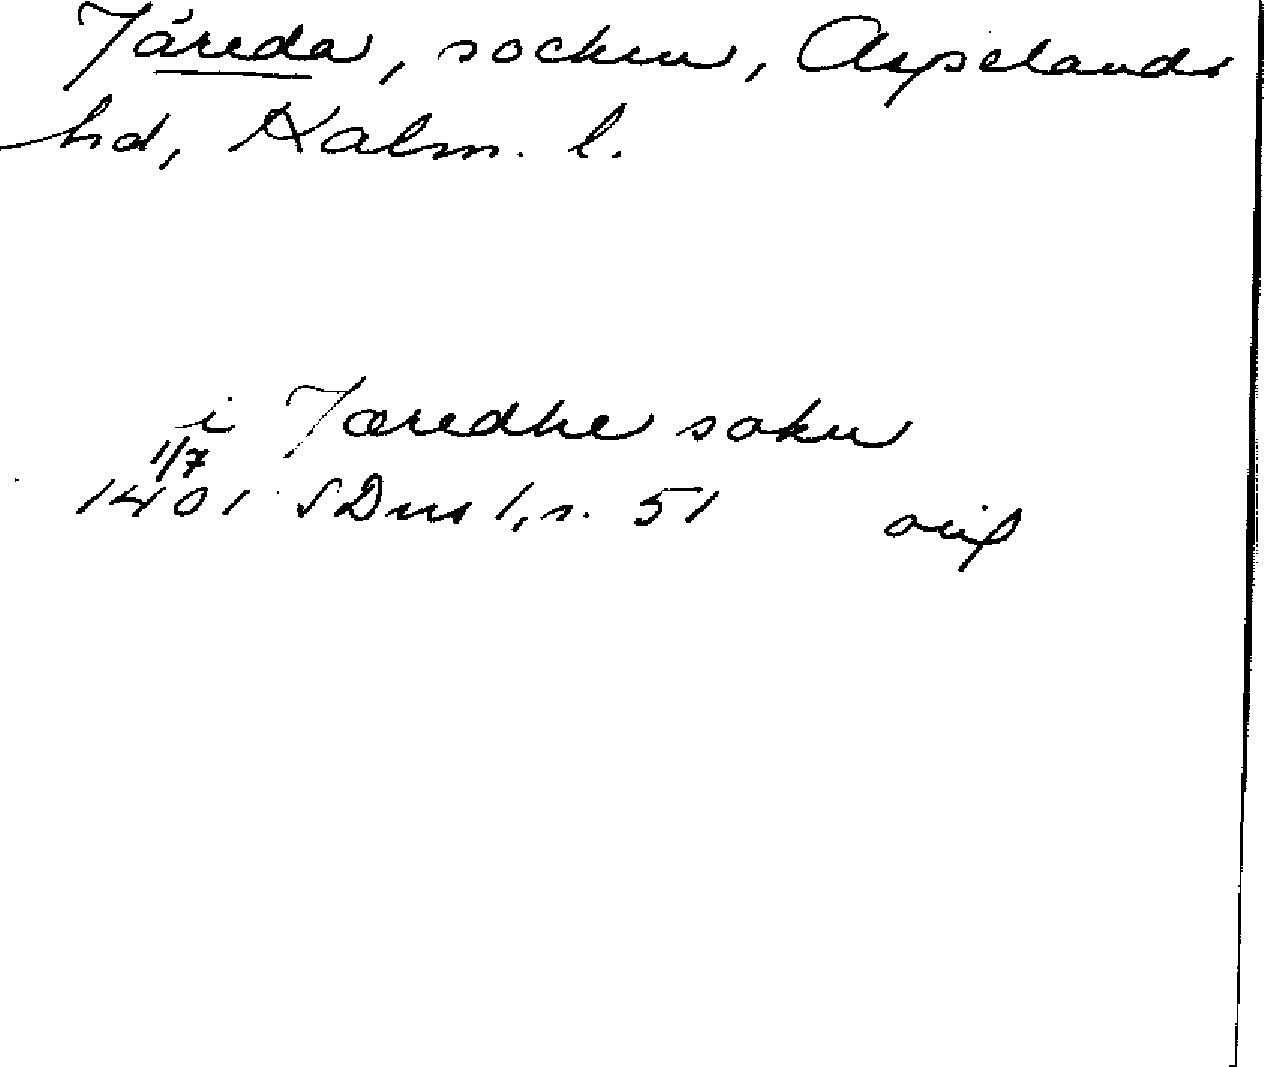 Järeda, socken, Aspelands
hd, Kalm. l.
i Jæredhe sokn
1/7
1401 SDns 1, s. 51 orig